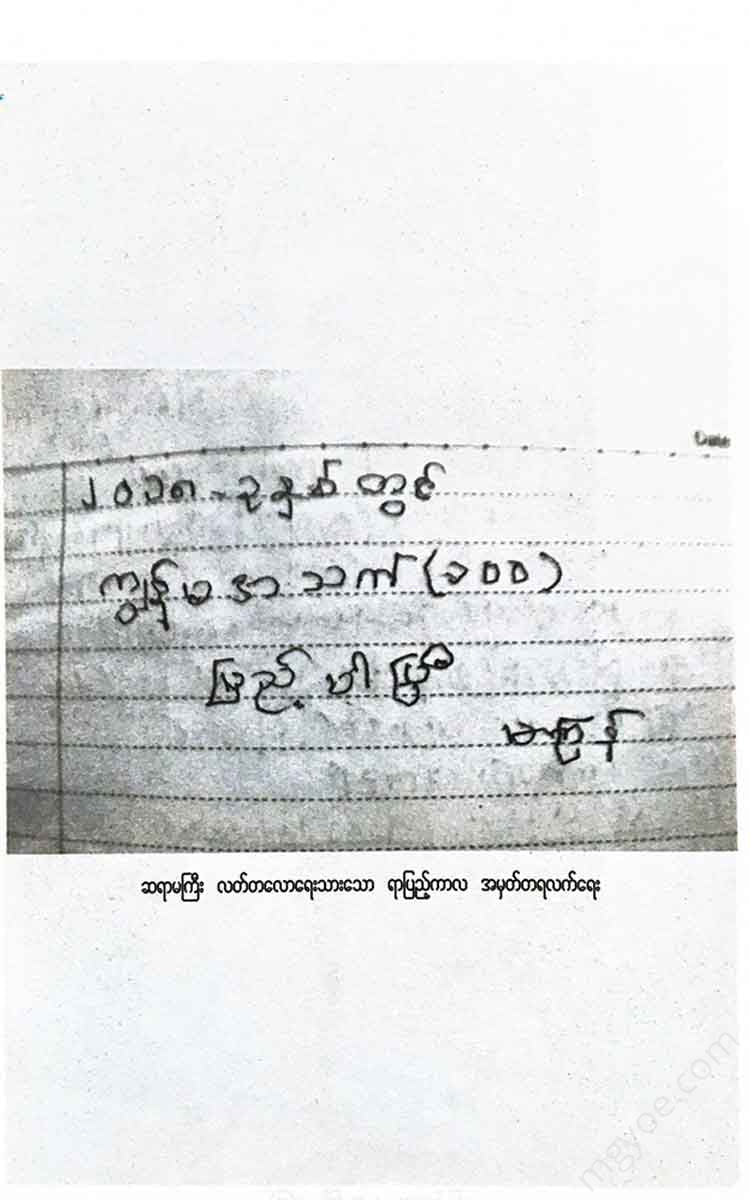 Date
၂၀၁၈ - ခုနှစ် တွင်
ကျွန်မ အသက် (၁၀၀)
ပြည့် ပါ ပြီ
မကြန်
ဆရာမကြီး လတ်တလောရေးသားသော ရာပြည့်ကာလ အမှတ်တရလက်ရေး
mgyoe.com